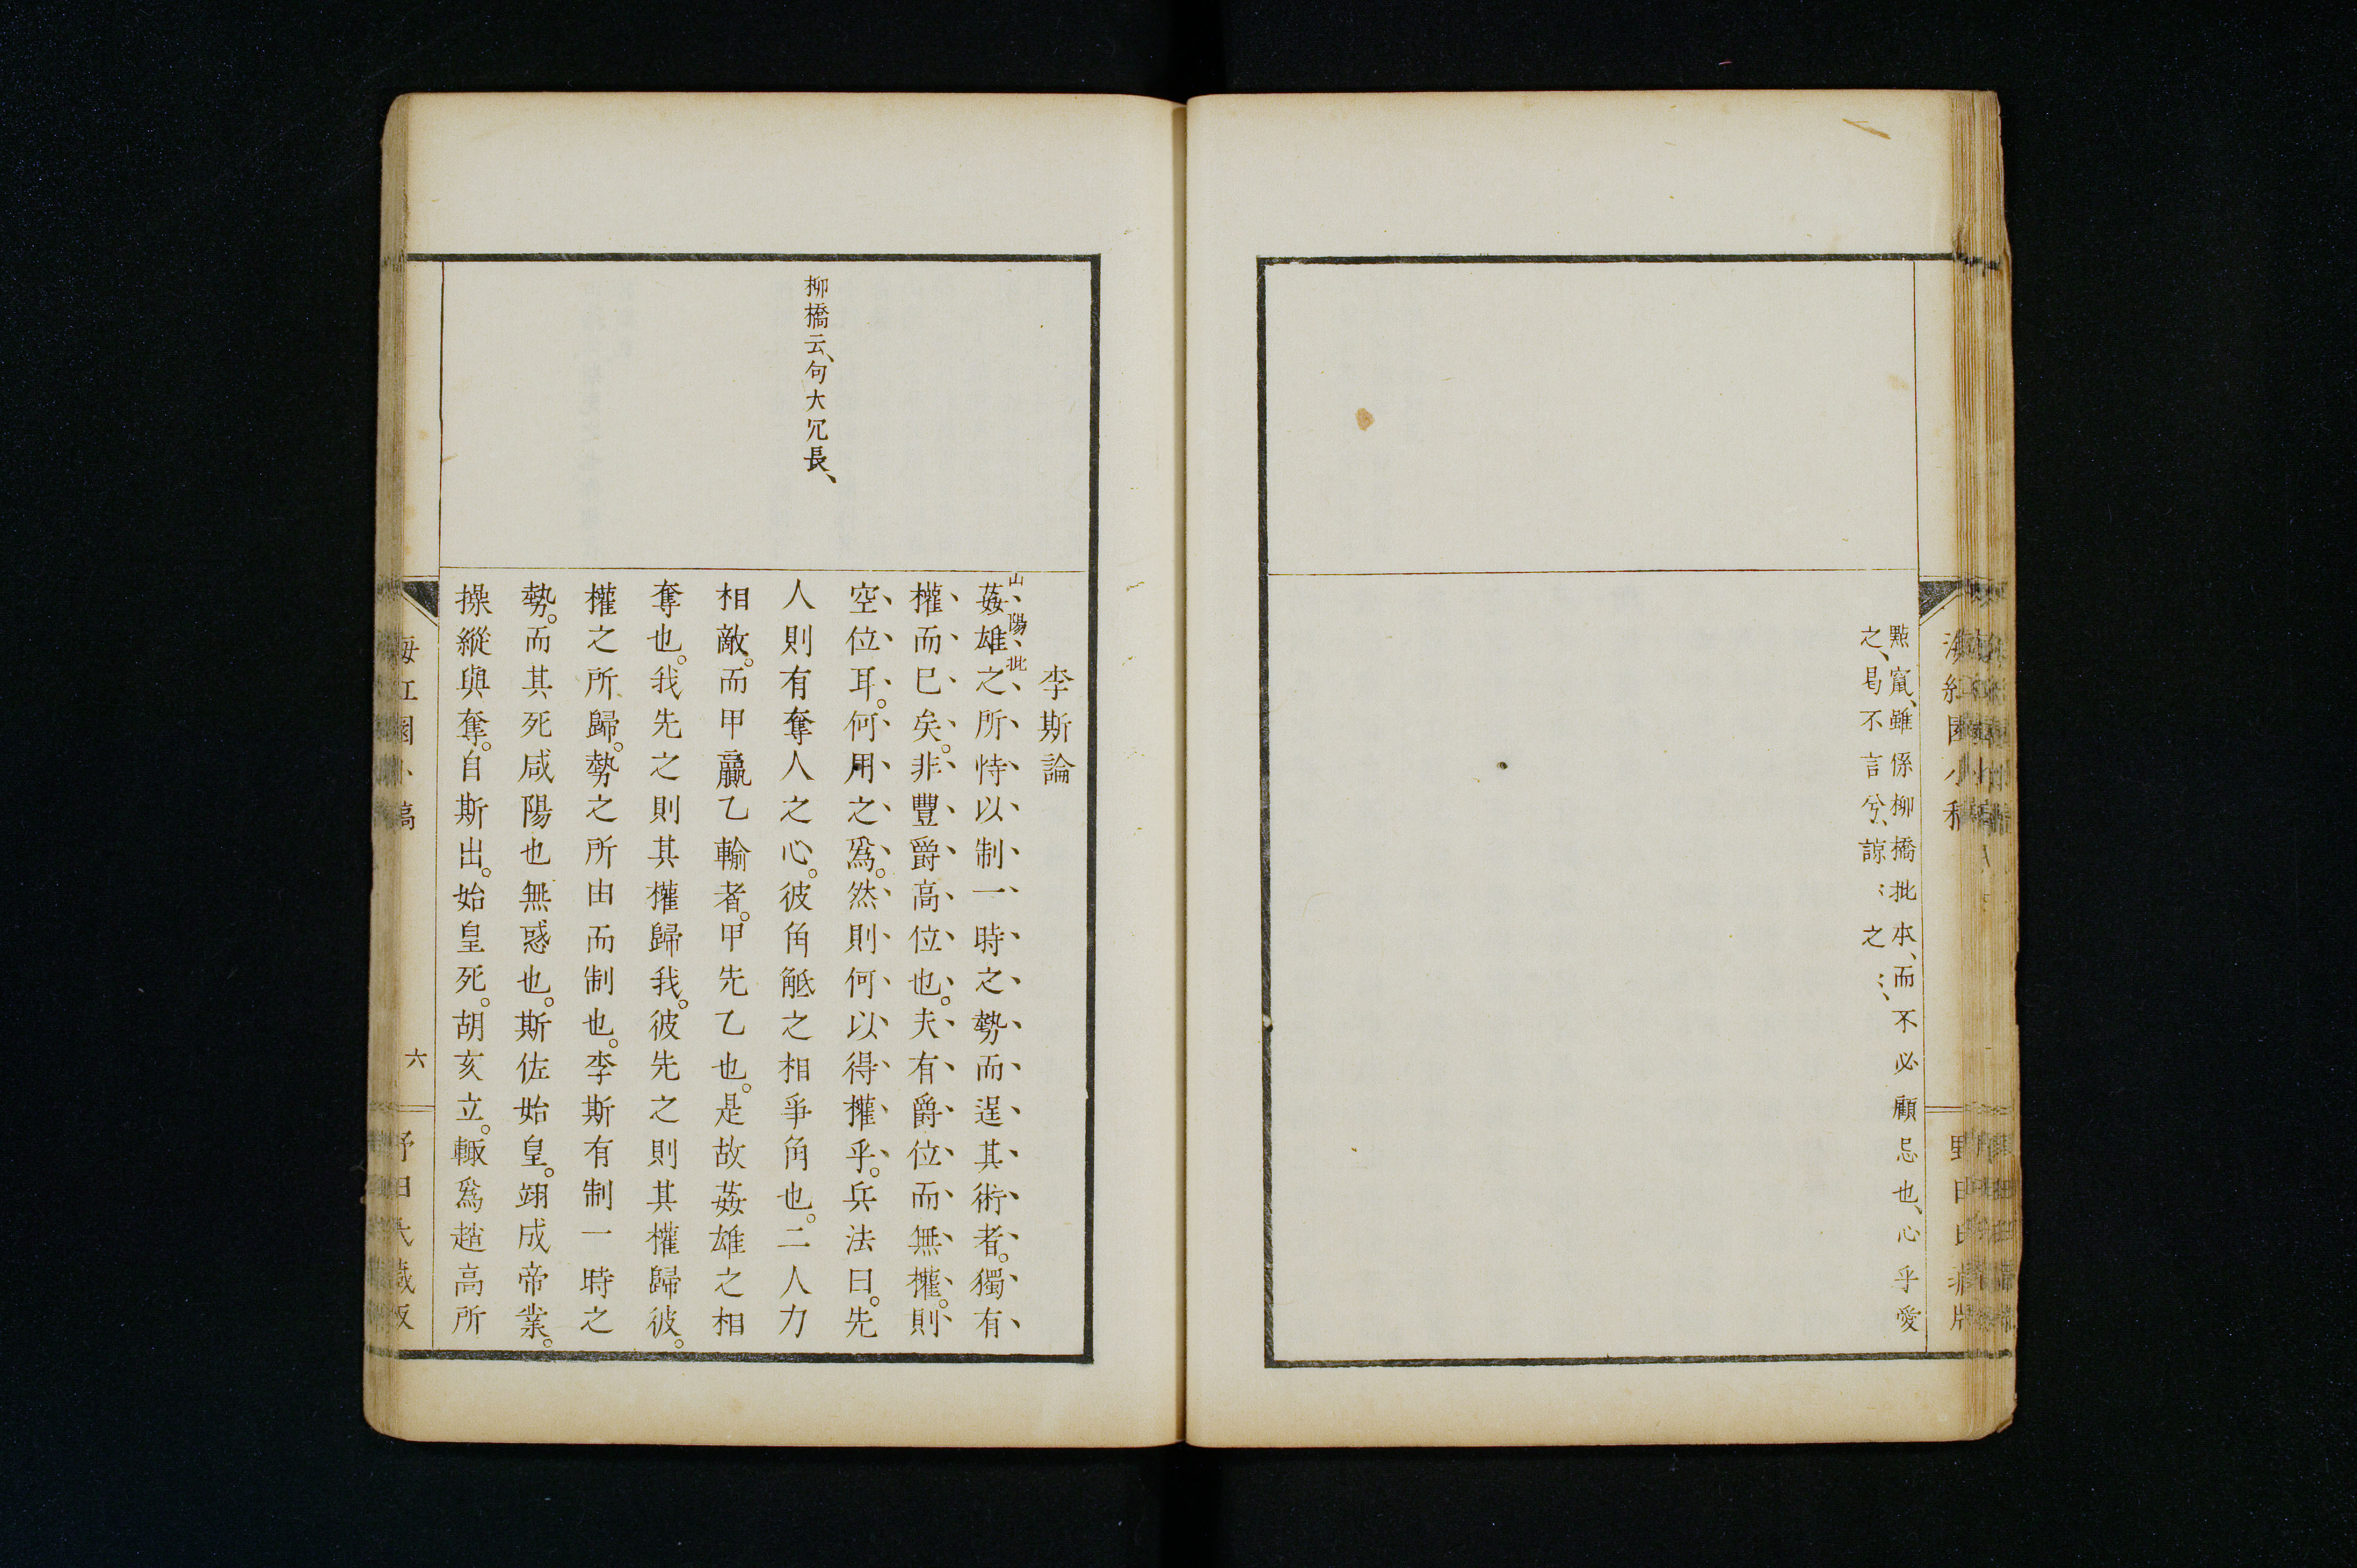 點竄、雖係柳橋批本、而不必顧忌也、心乎愛
之、曷不言兮、諒〻之〻、
柳橋云、句大冗長、
李斯論
山陽批
姦雄之所恃以制一時之勢而逞其術者。獨有
權而已矣。非豐爵高位也。夫有爵位而無權。則
空位耳。何用之爲。然則何以得權乎。兵法曰。先
人則有奪人之心。彼角觝之相爭角也。二人力
相敵。而甲贏乙輸者。甲先乙也。是故姦雄之相
奪也。我先之則其權歸我。彼先之則其權歸彼。
權之所歸。勢之所由而制也。李斯有制一時之
勢。而其死咸陽也無惑也。斯佐始皇。翊成帝業。
操縱與奪。自斯出。始皇死。胡亥立。輙爲趙高所
六